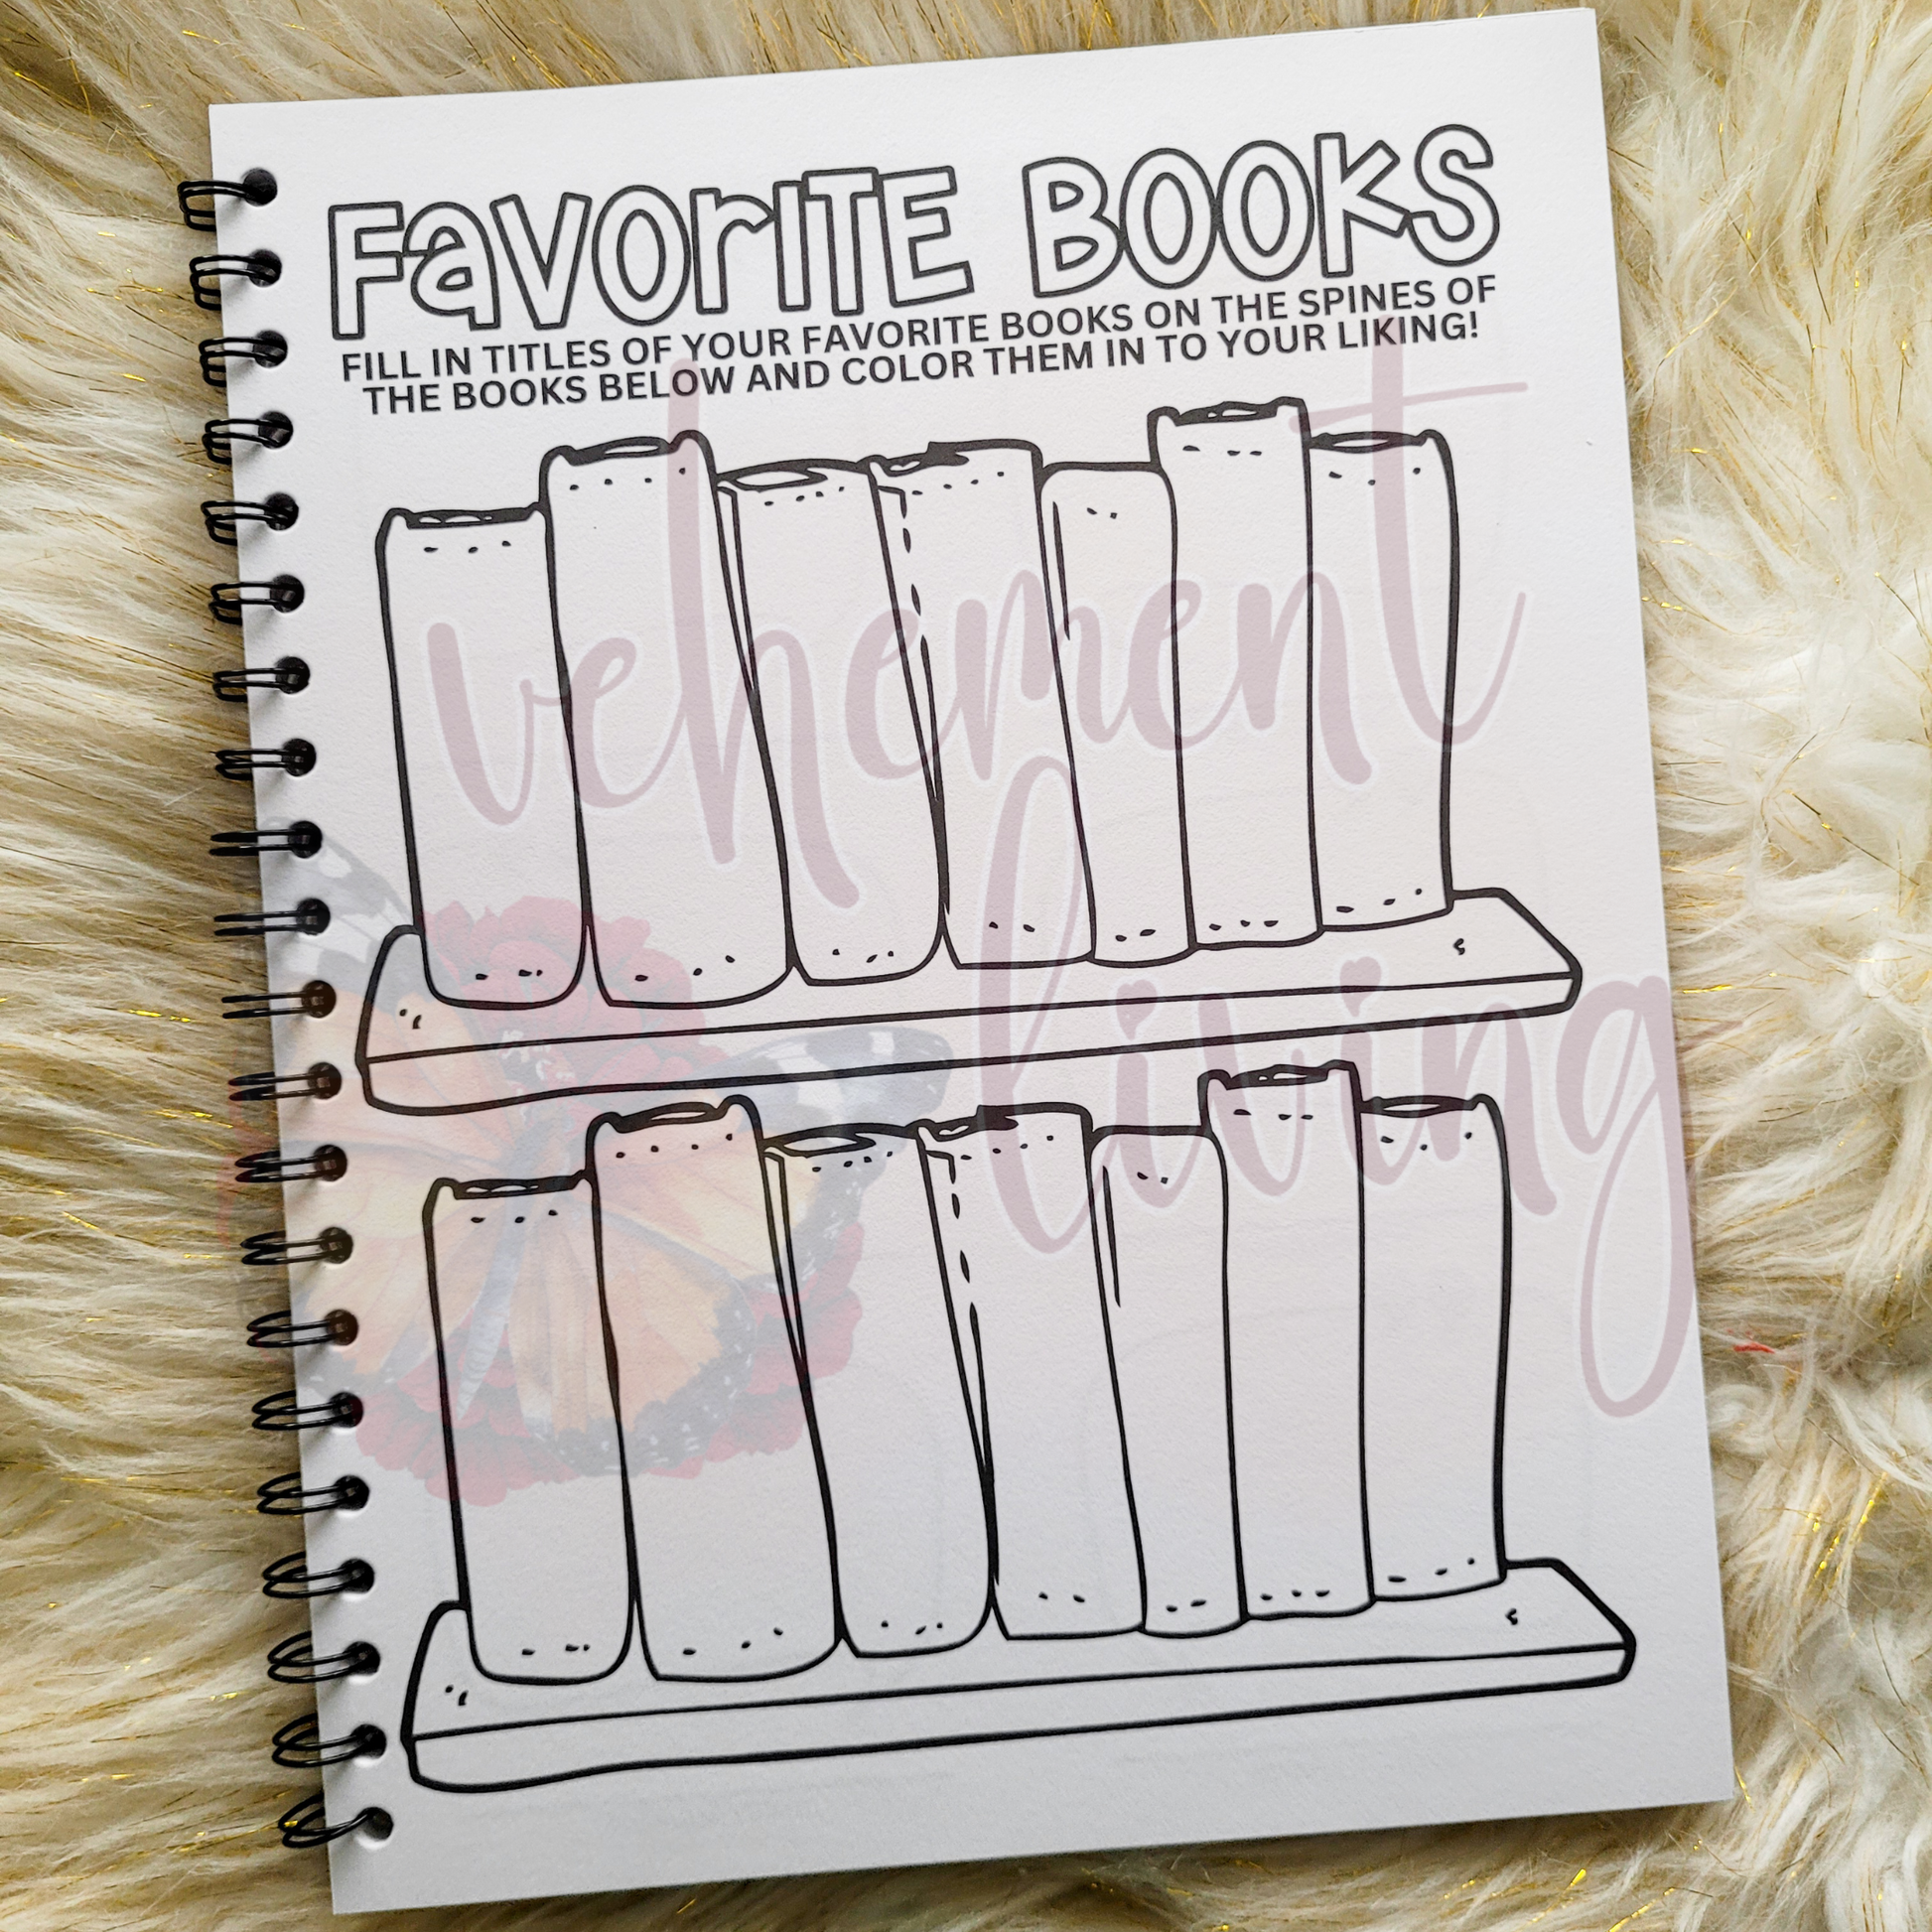 FavorITE BOOKS
FILL IN TITLES OF YOUR FAVORITE BOOKS ON THE SPINES OF
THE BOOKS BELOW AND COLOR THEM IN TO YOUR LIKING!
vehement
living